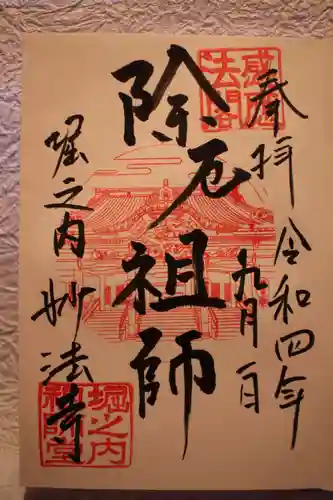 奉拝
令和四年
九月一日
除厄祖師
堀之内
妙法寺
堀之内
祖師堂